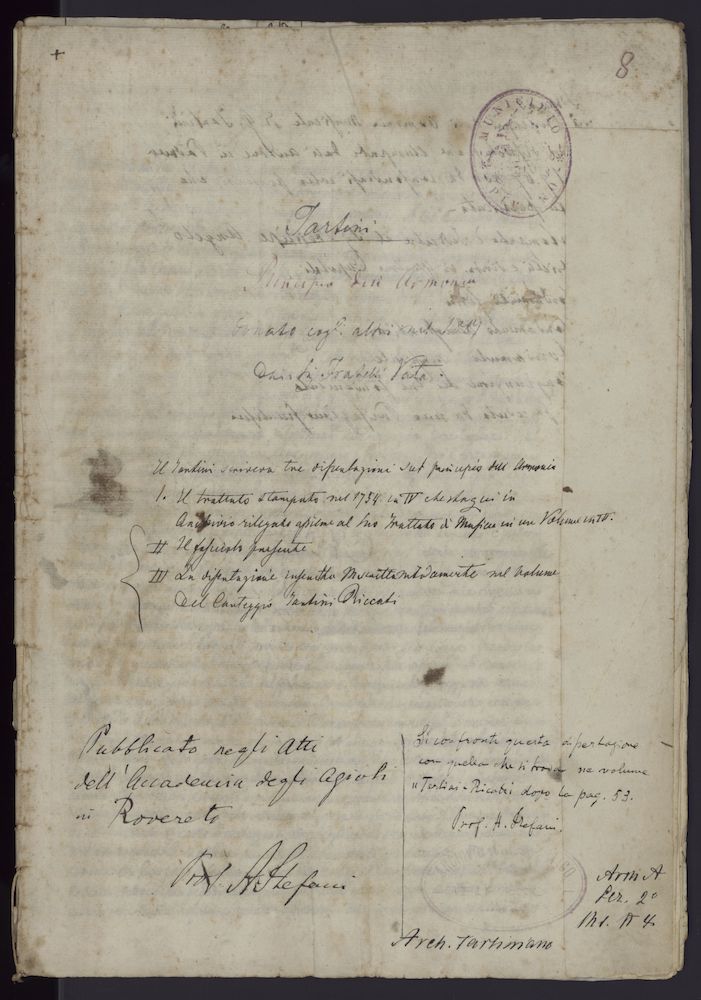 +
8
MUNICIPIO
Tartini
Principio dell'Armonia
Donato cogl. altri
Dai Fratelli Vatta
Il Tartini scriveva tre dissertazioni sul principio dell Armonia
1. Il trattato stampato nel 1754 in IV che
rilegato assieme al suo Trattato di Musica in un Volume in IV.
II Il fascicolo presente
III La dissertazione nel volume
del Carteggio Tartini Riccati
Pubblicato negli Atti
dell'Accademia degli Agiati
in Rovereto
Prof. A. Stefani
Si confronti questa dissertazione
con quella che si trova nel volume
"Tartini-Riccati dopo la pag. 53.
Prof. A. Stefani
Arm A
Ms. N 4
Arch. Tartiniano